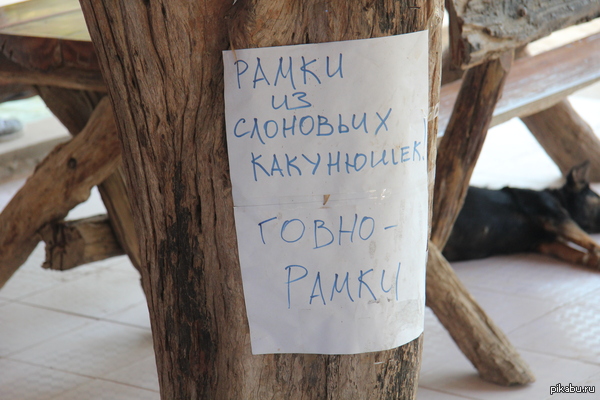 РАМКИ
ИЗ
СЛОНОВЬИХ
КАКУНЮШЕК.
ГОВНО-
РАМКИ
pikabu.ru